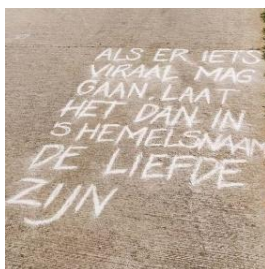 ALS ER IETS
VIRAAL MAG
GAAN. LAAT
HET DAN IN
'S HEMELSNAAM
DE LIEFDE
ZIJN